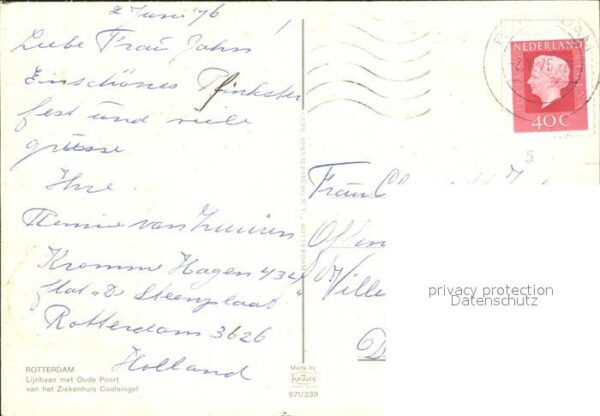 2 Juni '76
Liebe Frau John!
Ein schönes Pfinkster
fest und viele
grüsse
Ihre
van
Kromme Hagen
flat "De Steenplaat"
Rotterdam 3626
Holland
ROTTERDAM
Lijnbaan met Oude Poort
van het Ziekenhuis Coolsingel
Made by
971/339
NEDERLAND
40C
5
Frau
Offen
Ville
D
privacy protection
Datenschutz